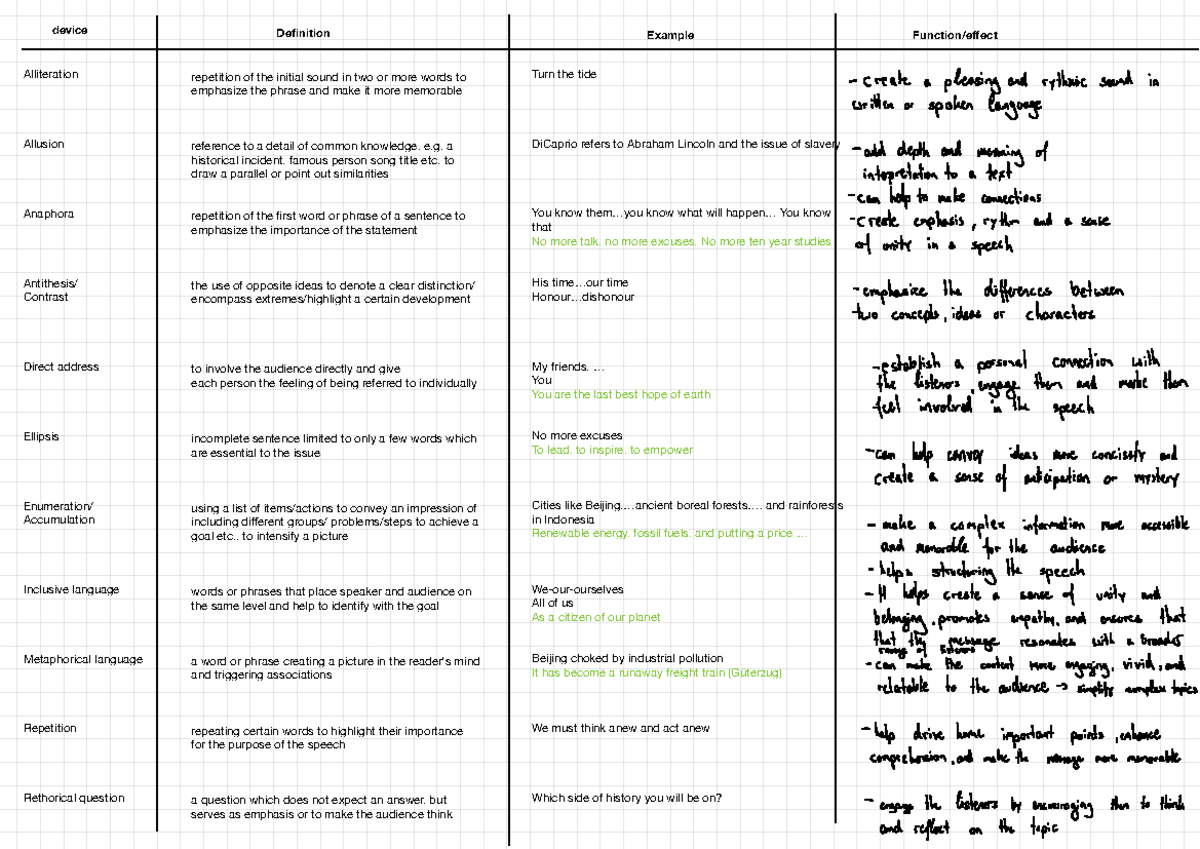 device Definition Example Function/effect
Alliteration
repetition of the initial sound in two or more words to
emphasize the phrase and make it more memorable
Turn the tide
- create a pleasing and rythmic sound in
written or spoken language
Allusion
reference to a detail of common knowledge. e.g. a
historical incident. famous person song title etc. to
draw a parallel or point out similarities
DiCaprio refers to Abraham Lincoln and the issue of slavery
- add depth and meaning of
intepretation to a text
- can help to make connections
Anaphora
repetition of the first word or phrase of a sentence to
emphasize the importance of the statement
You know them...you know what will happen... You know
that
No more talk. no more excuses. No more ten year studies
- create emphasis, rythm and a sense
of unity in a speech
Antithesis/
Contrast
the use of opposite ideas to denote a clear distinction/
encompass extremes/highlight a certain development
His time...our time
Honour...dishonour
- emphasize the differences between
two concepts, ideas or characters
Direct address
to involve the audience directly and give
each person the feeling of being referred to individually
My friends. ...
You
You are the last best hope of earth
- establish a personal connection with
the listeners, engage them and make them
feel involved in the speech
Ellipsis
incomplete sentence limited to only a few words which
are essential to the issue
No more excuses
To lead. to inspire. to empower
- can help convey ideas more concisely and
create a sense of anticipation or mystery
Enumeration/
Accumulation
using a list of items/actions to convey an impression of
including different groups/ problems/steps to achieve a
goal etc.. to intensify a picture
Cities like Beijing....ancient boreal forests.... and rainforests
in Indonesia
Renewable energy. fossil fuels. and putting a price ...
- make a complex information more accessible
and memorable for the audience
- helps structuring the speech
Inclusive language
words or phrases that place speaker and audience on
the same level and help to identify with the goal
We-our-ourselves
All of us
As a citizen of our planet
- It helps create a sense of unity and
belonging, promotes empathy, and ensures that
that the message resonates with a broader
range of listeners
Metaphorical language
a word or phrase creating a picture in the reader's mind
and triggering associations
Beijing choked by industrial pollution
It has become a runaway freight train (Güterzug)
- can make the content more engaging, vivid, and
relatable to the audience → simplify complex topics
Repetition
repeating certain words to highlight their importance
for the purpose of the speech
We must think anew and act anew
- help drive home important points, enhance
comprehension, and make the message more memorable
Rethorical question
a question which does not expect an answer. but
serves as emphasis or to make the audience think
Which side of history you will be on?
- engage the listeners by encouraging them to think
and reflect on the topic